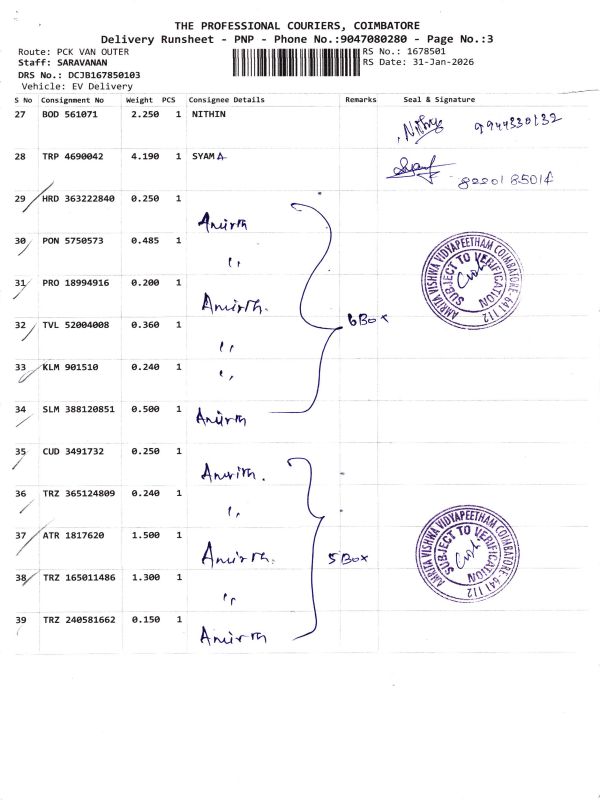 THE PROFESSIONAL COURIERS, COIMBATORE
Delivery Runsheet - PNP - Phone No.:9047080280 - Page No.:3
Route: PCK VAN OUTER RS No.: 1678501
Staff: SARAVANAN RS Date: 31-Jan-2026
DRS No.: DCJB167850103
Vehicle: EV Delivery
S No Consignment No Weight PCS Consignee Details Remarks Seal & Signature
27 BOD 561071 2.250 1 NITHIN Nithin 9944330132
28 TRP 4690042 4.190 1 SYAMA
8220185014
29 HRD 363222840 0.250 1
Amirth
30 PON 5750573 0.485 1
"
31 PRO 18994916 0.200 1
Amirth.
6 Box
32 TVL 52004008 0.360 1
"
33 KLM 901510 0.240 1
"
34 SLM 388120851 0.500 1
Amirth
AMRITA VISHWA VIDYAPEETHAM COIMBATORE-641 112
SUBJECT TO VERIFICATION
35 CUD 3491732 0.250 1
Amirth.
36 TRZ 365124809 0.240 1
"
37 ATR 1817620 1.500 1
Amirth.
5 Box
38 TRZ 165011486 1.300 1
"
39 TRZ 240581662 0.150 1
Amirth
AMRITA VISHWA VIDYAPEETHAM COIMBATORE-641 112
SUBJECT TO VERIFICATION